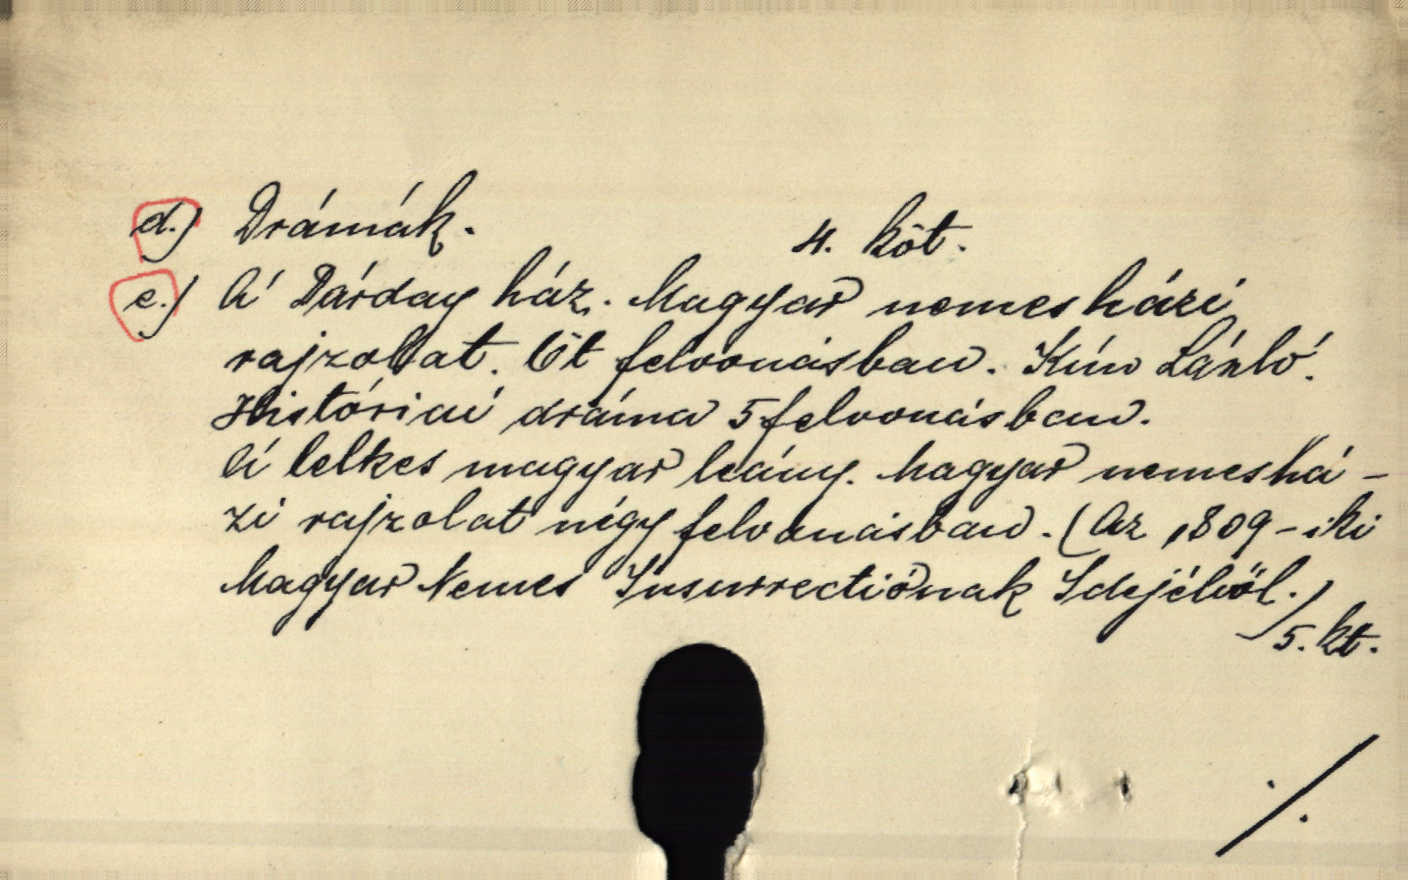 d.) Drámák. 4. köt.
e.) A' Dárday ház. Magyar nemesházi
rajzolat. Öt felvonásban. Kún László.
Históriai dráma 5 felvonásban.
A' lelkes magyar leány. Magyar nemeshá-
zi rajzolat négy felvonásban. (Az 1809-iki
Magyar Nemes Insurrectiónak Idejéből.)
5. kt.
./.